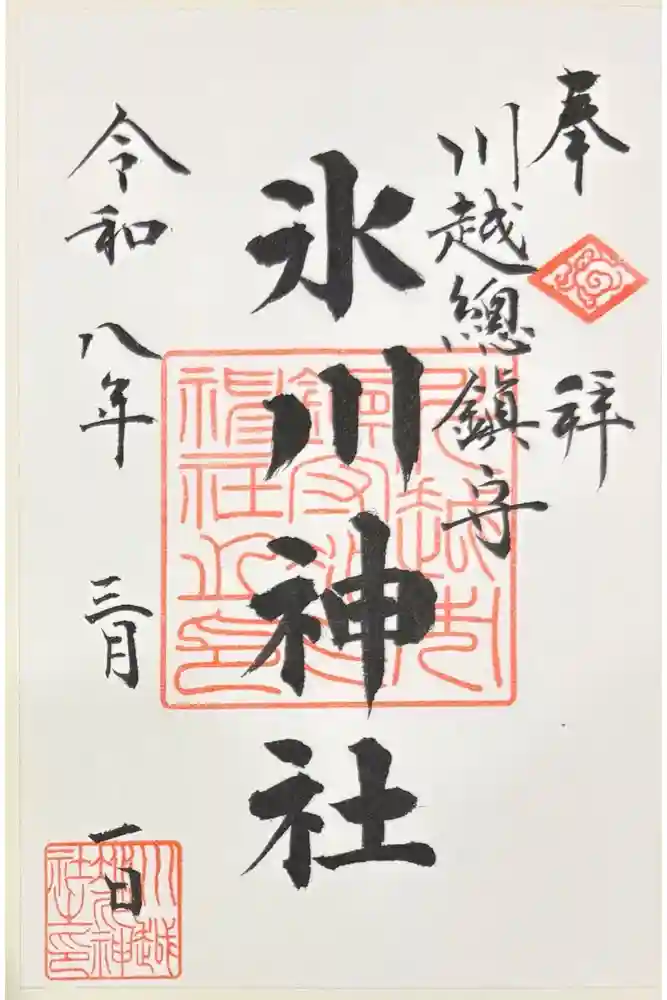 奉拝
川越總鎮守
氷川神社
令和八年三月一日
川越氷川神社之印